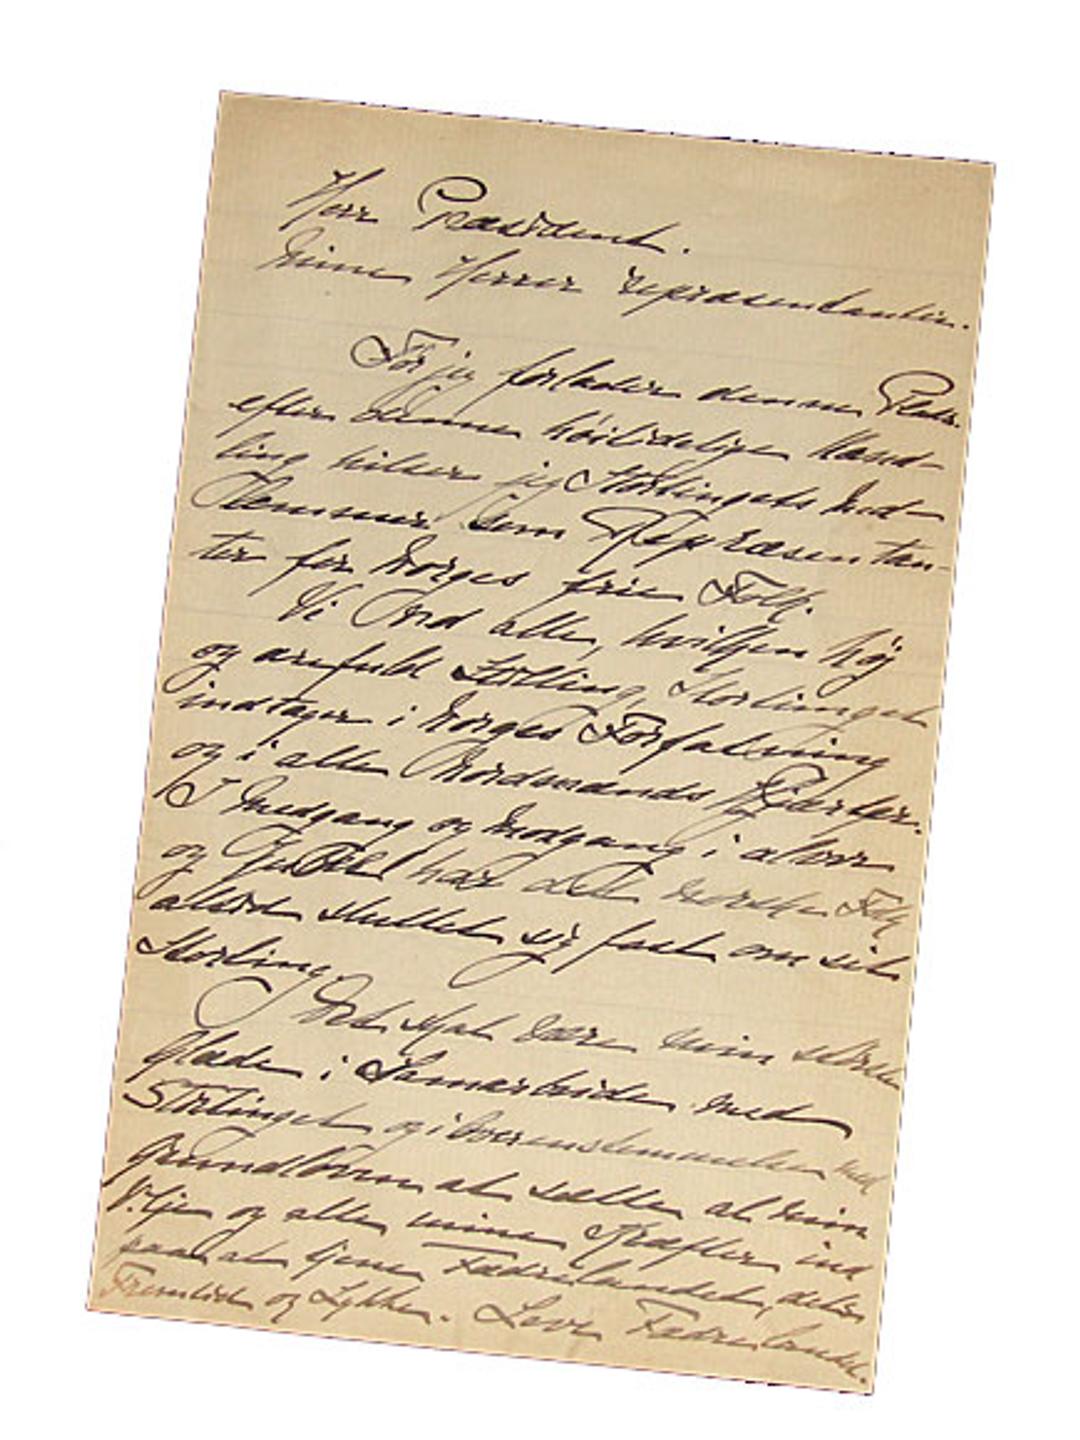 Herr Præsident.
Mine Herrer repræsentanter.
Før jeg forlader denne Plads.
efter denne høitidelige Hand-
ling hilser jeg Stortingets Med-
lemmer som Repræsentan-
ter for Norges frie Folk.
Vi Ved alle, hvilken høj
og ærefuld Stilling, Stortinget
indtager i Norges Forfatning
og i alle Nordmænds Hjerter.
I Medgang og Modgang i alvor
og Jubel har det norske Folk
altid sluttet sig fast om sit
Storting.
Det skal være min største
Glæde i Samarbeide med
Stortinget og i Overensstemmelse med
Grundloven at sætte al min
Vilje og alle mine Kræfter ind
paa at tjene Fædrelandet, dets
Fremtid og Lykke. Leve Fædrelandet.